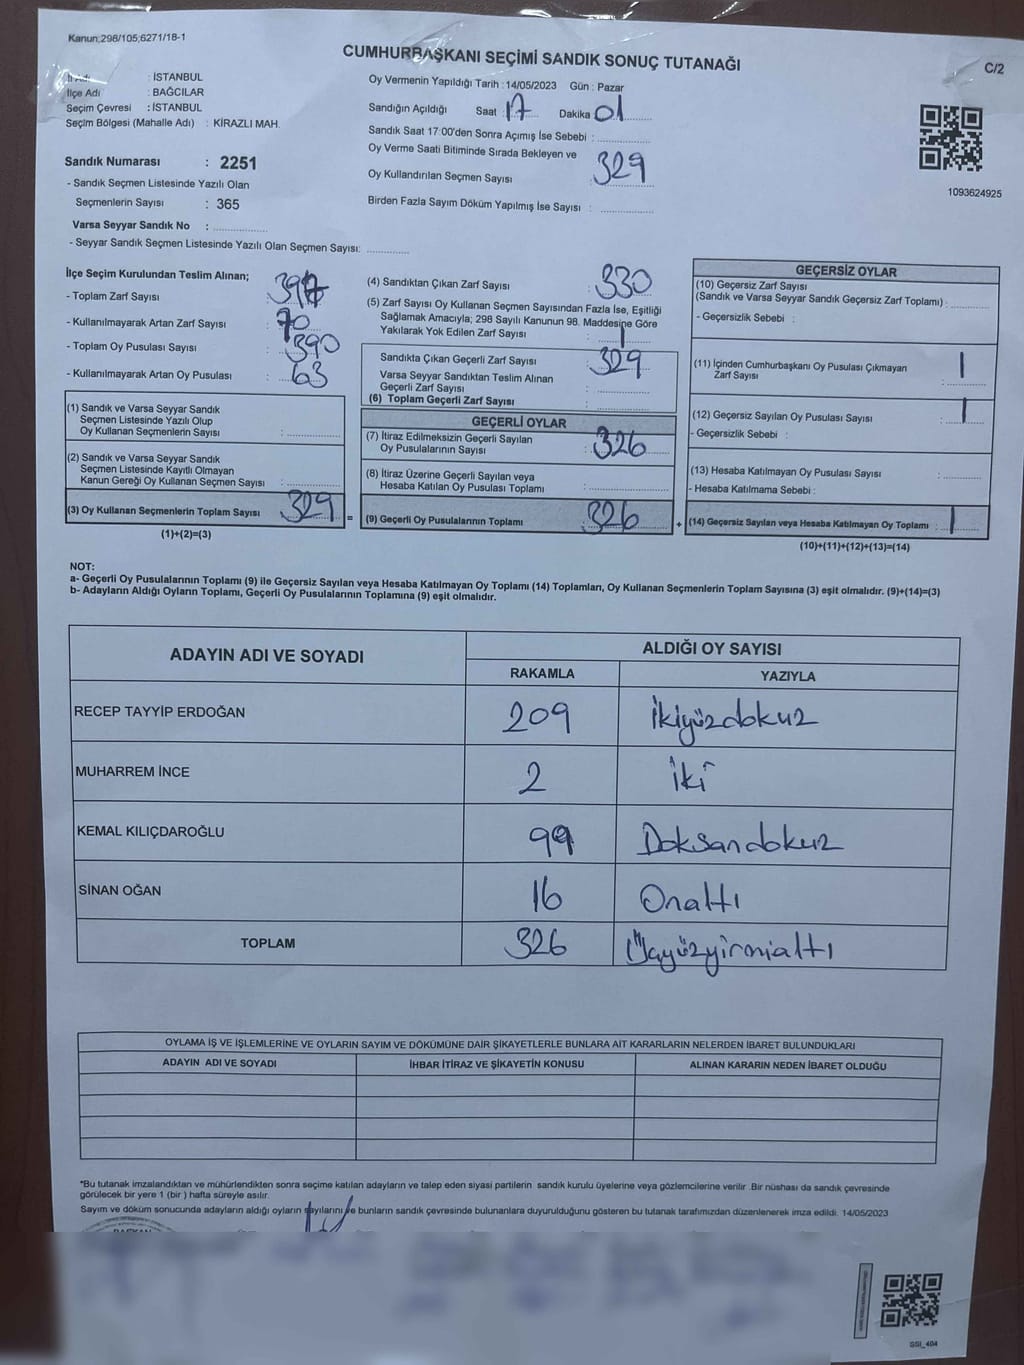 Kanun:298/105;6271/18-1
CUMHURBAŞKANI SEÇİMİ SANDIK SONUÇ TUTANAĞI
C/2
İl Adı : İSTANBUL
İlçe Adı : BAĞCILAR
Seçim Çevresi : İSTANBUL
Seçim Bölgesi (Mahalle Adı) : KİRAZLI MAH.
Oy Vermenin Yapıldığı Tarih : 14/05/2023 Gün : Pazar
Sandığın Açıldığı Saat : 17 Dakika 01
Sandık Saat 17:00'den Sonra Açımış İse Sebebi :
Oy Verme Saati Bitiminde Sırada Bekleyen ve
Oy Kullandırılan Seçmen Sayısı 329
Birden Fazla Sayım Döküm Yapılmış İse Sayısı :
1093624925
Sandık Numarası : 2251
- Sandık Seçmen Listesinde Yazılı Olan
Seçmenlerin Sayısı : 365
Varsa Seyyar Sandık No :
- Seyyar Sandık Seçmen Listesinde Yazılı Olan Seçmen Sayısı:
İlçe Seçim Kurulundan Teslim Alınan;
- Toplam Zarf Sayısı :
- Kullanılmayarak Artan Zarf Sayısı : 70
- Toplam Oy Pusulası Sayısı : 390
- Kullanılmayarak Artan Oy Pusulası : 63
(1) Sandık ve Varsa Seyyar Sandık
Seçmen Listesinde Yazılı Olup
Oy Kullanan Seçmenlerin Sayısı :
(2) Sandık ve Varsa Seyyar Sandık
Seçmen Listesinde Kayıtlı Olmayan
Kanun Gereği Oy Kullanan Seçmen Sayısı :
(3) Oy Kullanan Seçmenlerin Toplam Sayısı : 329 =
(1)+(2)=(3)
(4) Sandıktan Çıkan Zarf Sayısı : 330
(5) Zarf Sayısı Oy Kullanan Seçmen Sayısından Fazla İse, Eşitliği
Sağlamak Amacıyla; 298 Sayılı Kanunun 98. Maddesine Göre
Yakılarak Yok Edilen Zarf Sayısı : 1
Sandıkta Çıkan Geçerli Zarf Sayısı : 329
Varsa Seyyar Sandıktan Teslim Alınan
Geçerli Zarf Sayısı :
(6) Toplam Geçerli Zarf Sayısı :
GEÇERLİ OYLAR
(7) İtiraz Edilmeksizin Geçerli Sayılan
Oy Pusulalarının Sayısı : 326
(8) İtiraz Üzerine Geçerli Sayılan veya
Hesaba Katılan Oy Pusulası Toplamı :
(9) Geçerli Oy Pusulalarının Toplamı : 326 +
GEÇERSİZ OYLAR
(10) Geçersiz Zarf Sayısı
(Sandık ve Varsa Seyyar Sandık Geçersiz Zarf Toplamı) :
- Geçersizlik Sebebi :
(11) İçinden Cumhurbaşkanı Oy Pusulası Çıkmayan
Zarf Sayısı : 1
(12) Geçersiz Sayılan Oy Pusulası Sayısı : 1
- Geçersizlik Sebebi :
(13) Hesaba Katılmayan Oy Pusulası Sayısı :
- Hesaba Katılmama Sebebi :
(14) Geçersiz Sayılan veya Hesaba Katılmayan Oy Toplamı : 1
(10)+(11)+(12)+(13)=(14)
NOT:
a- Geçerli Oy Pusulalarının Toplamı (9) ile Geçersiz Sayılan veya Hesaba Katılmayan Oy Toplamı (14) Toplamları, Oy Kullanan Seçmenlerin Toplam Sayısına (3) eşit olmalıdır. (9)+(14)=(3)
b- Adayların Aldığı Oyların Toplamı, Geçerli Oy Pusulalarının Toplamına (9) eşit olmalıdır.
ADAYIN ADI VE SOYADI ALDIĞI OY SAYISI
RAKAMLA YAZIYLA
RECEP TAYYİP ERDOĞAN 209 İkiyüzdokuz
MUHARREM İNCE 2 İki
KEMAL KILIÇDAROĞLU 99 Doksandokuz
SİNAN OĞAN 16 Onaltı
TOPLAM 326 Üçyüzyirmialtı
OYLAMA İŞ VE İŞLEMLERİNE VE OYLARIN SAYIM VE DÖKÜMÜNE DAİR ŞİKAYETLERLE BUNLARA AİT KARARLARIN NELERDEN İBARET BULUNDUKLARI
ADAYIN ADI VE SOYADI İHBAR İTİRAZ VE ŞİKAYETİN KONUSU ALINAN KARARIN NEDEN İBARET OLDUĞU
*Bu tutanak imzalandıktan ve mühürlendikten sonra seçime katılan adayların ve talep eden siyasi partilerin sandık kurulu üyelerine veya gözlemcilerine verilir .Bir nüshası da sandık çevresinde
görülecek bir yere 1 (bir ) hafta süreyle asılır.
Sayım ve döküm sonucunda adayların aldığı oyların sayılarını ve bunların sandık çevresinde bulunanlara duyurulduğunu gösteren bu tutanak tarafımızdan düzenlenerek imza edildi. 14/05/2023
BAŞKAN
SSI_404